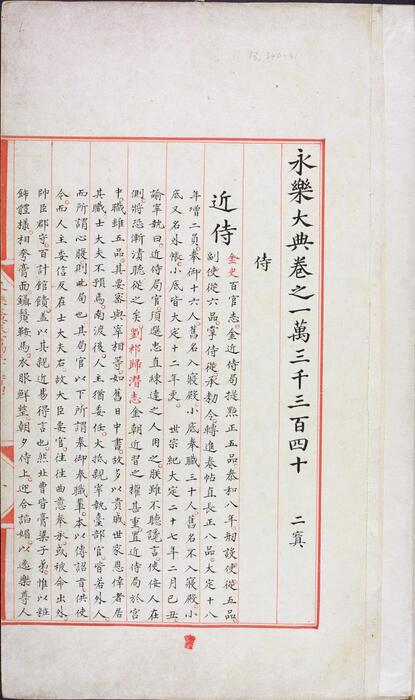 永樂大典卷之一萬三千三百四十 二寘
侍
近侍 金史百官志金近侍局提點正五品泰和八年剏設使從五品
副使從六品掌侍從承勑令轉進奏帖直長正八品大定十八
年增二員奉御十六人舊名入寢殿小底奉職三十人舊名不入寢殿小
底又名外帳小底皆大定十二年更 世宗紀大定二十七年二月己丑
諭宰執曰近侍局官須選忠直練達之人用之朕雖不聽讒言使佞人在
側將恐漸漬聽從之矣劉祁歸潛志金朝近習之權甚重置近侍局於宮
中職雖五品其要密與宰相等如舊日中書故多以貴戚世家恩倖者居
其職士大夫不預焉南渡後人主猶委任大抵視宰執臺部官皆若外人
而所謂心腹則此局也其局官以下所謂奉御奉職輩本以傳詔旨供使
令而人主委信反在士大夫右故大臣要官往往曲意奉承或被命出外
帥臣郡守百計館饋蓋以其親近易得言也然此曹皆膏粱子弟惟以粧
飾體樣相夸膏面鑷鬚鞍馬衣服鮮整朝夕侍上迎合諂媚以逸樂導人